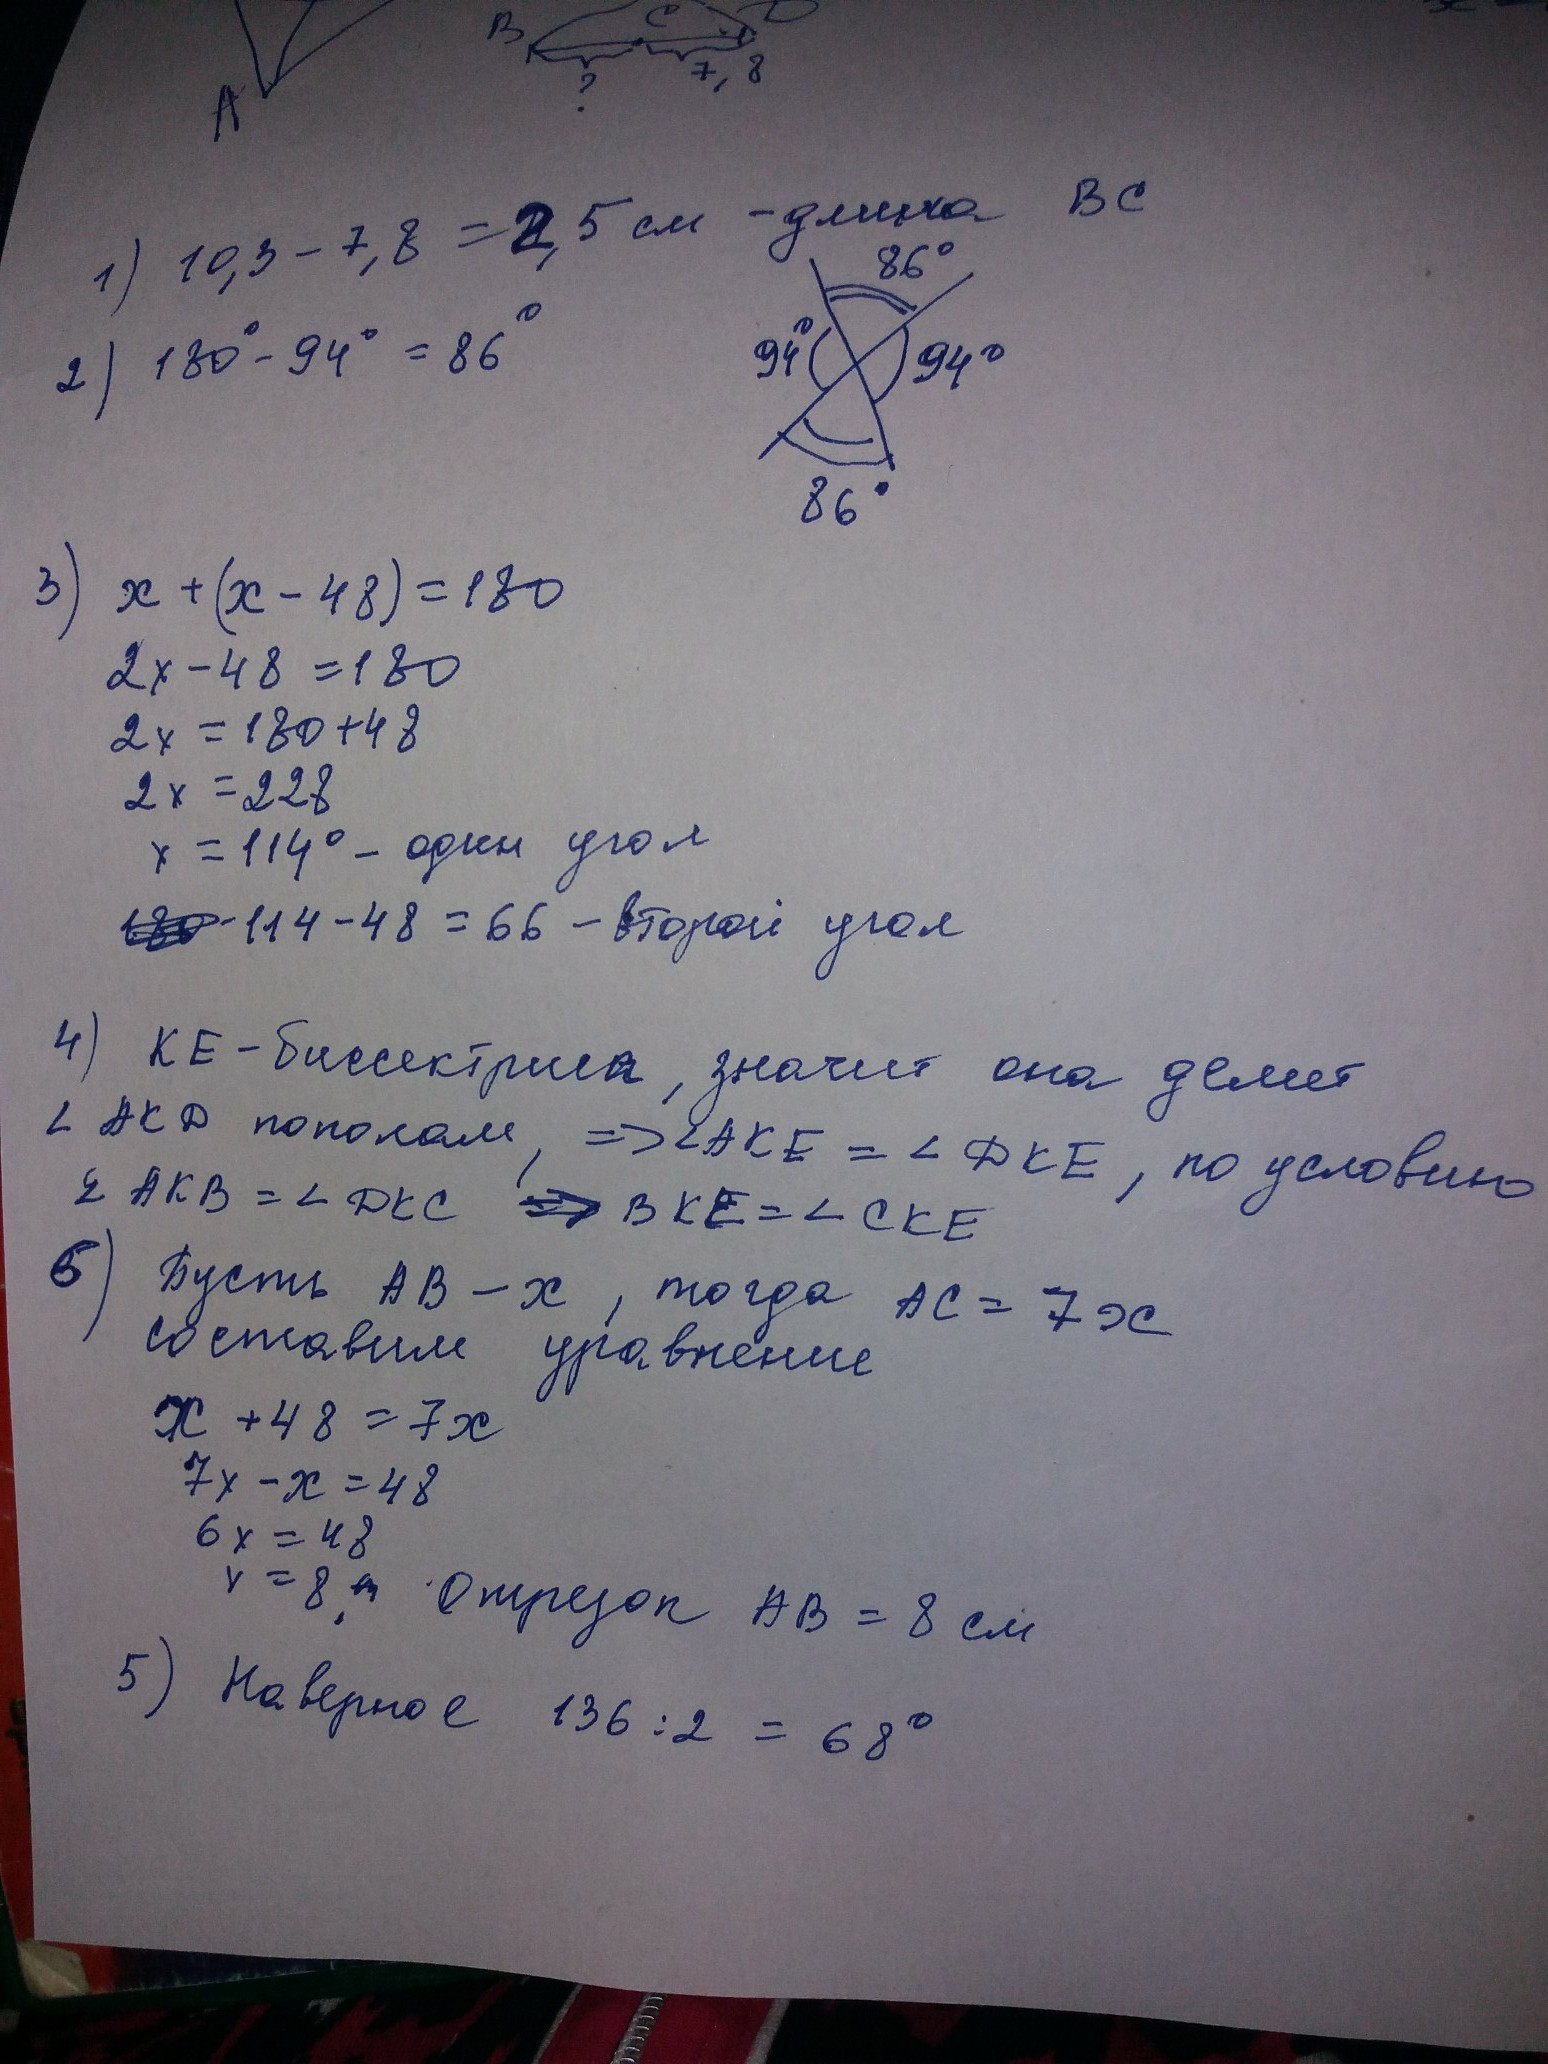 A
B C D
? 7,8
1) 10,3 - 7,8 = 2,5 см - длина BC
2) 180° - 94° = 86°
86°
94° 94°
86°
3) x + (x - 48) = 180
2x - 48 = 180
2x = 180 + 48
2x = 228
x = 114° - один угол
114 - 48 = 66 - второй угол
4) KE - биссектриса, значит она делит
∠ AKD пополам, => ∠AKE = ∠ DKE, по условию
∠ AKB = ∠ DKC => BKE = ∠ CKE
6) Пусть AB - x, тогда AC = 7x
составим уравнение
x + 48 = 7x
7x - x = 48
6x = 48
x = 8, Отрезок AB = 8 см
5) Наверное 136 : 2 = 68°